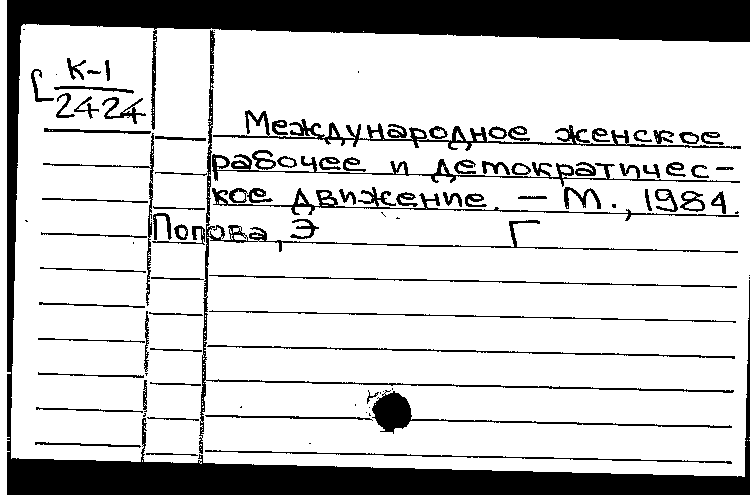 К-1
2424
Международное женское
рабочее и демократичес-
кое движение. - М., 1984.
Попова, Э Г